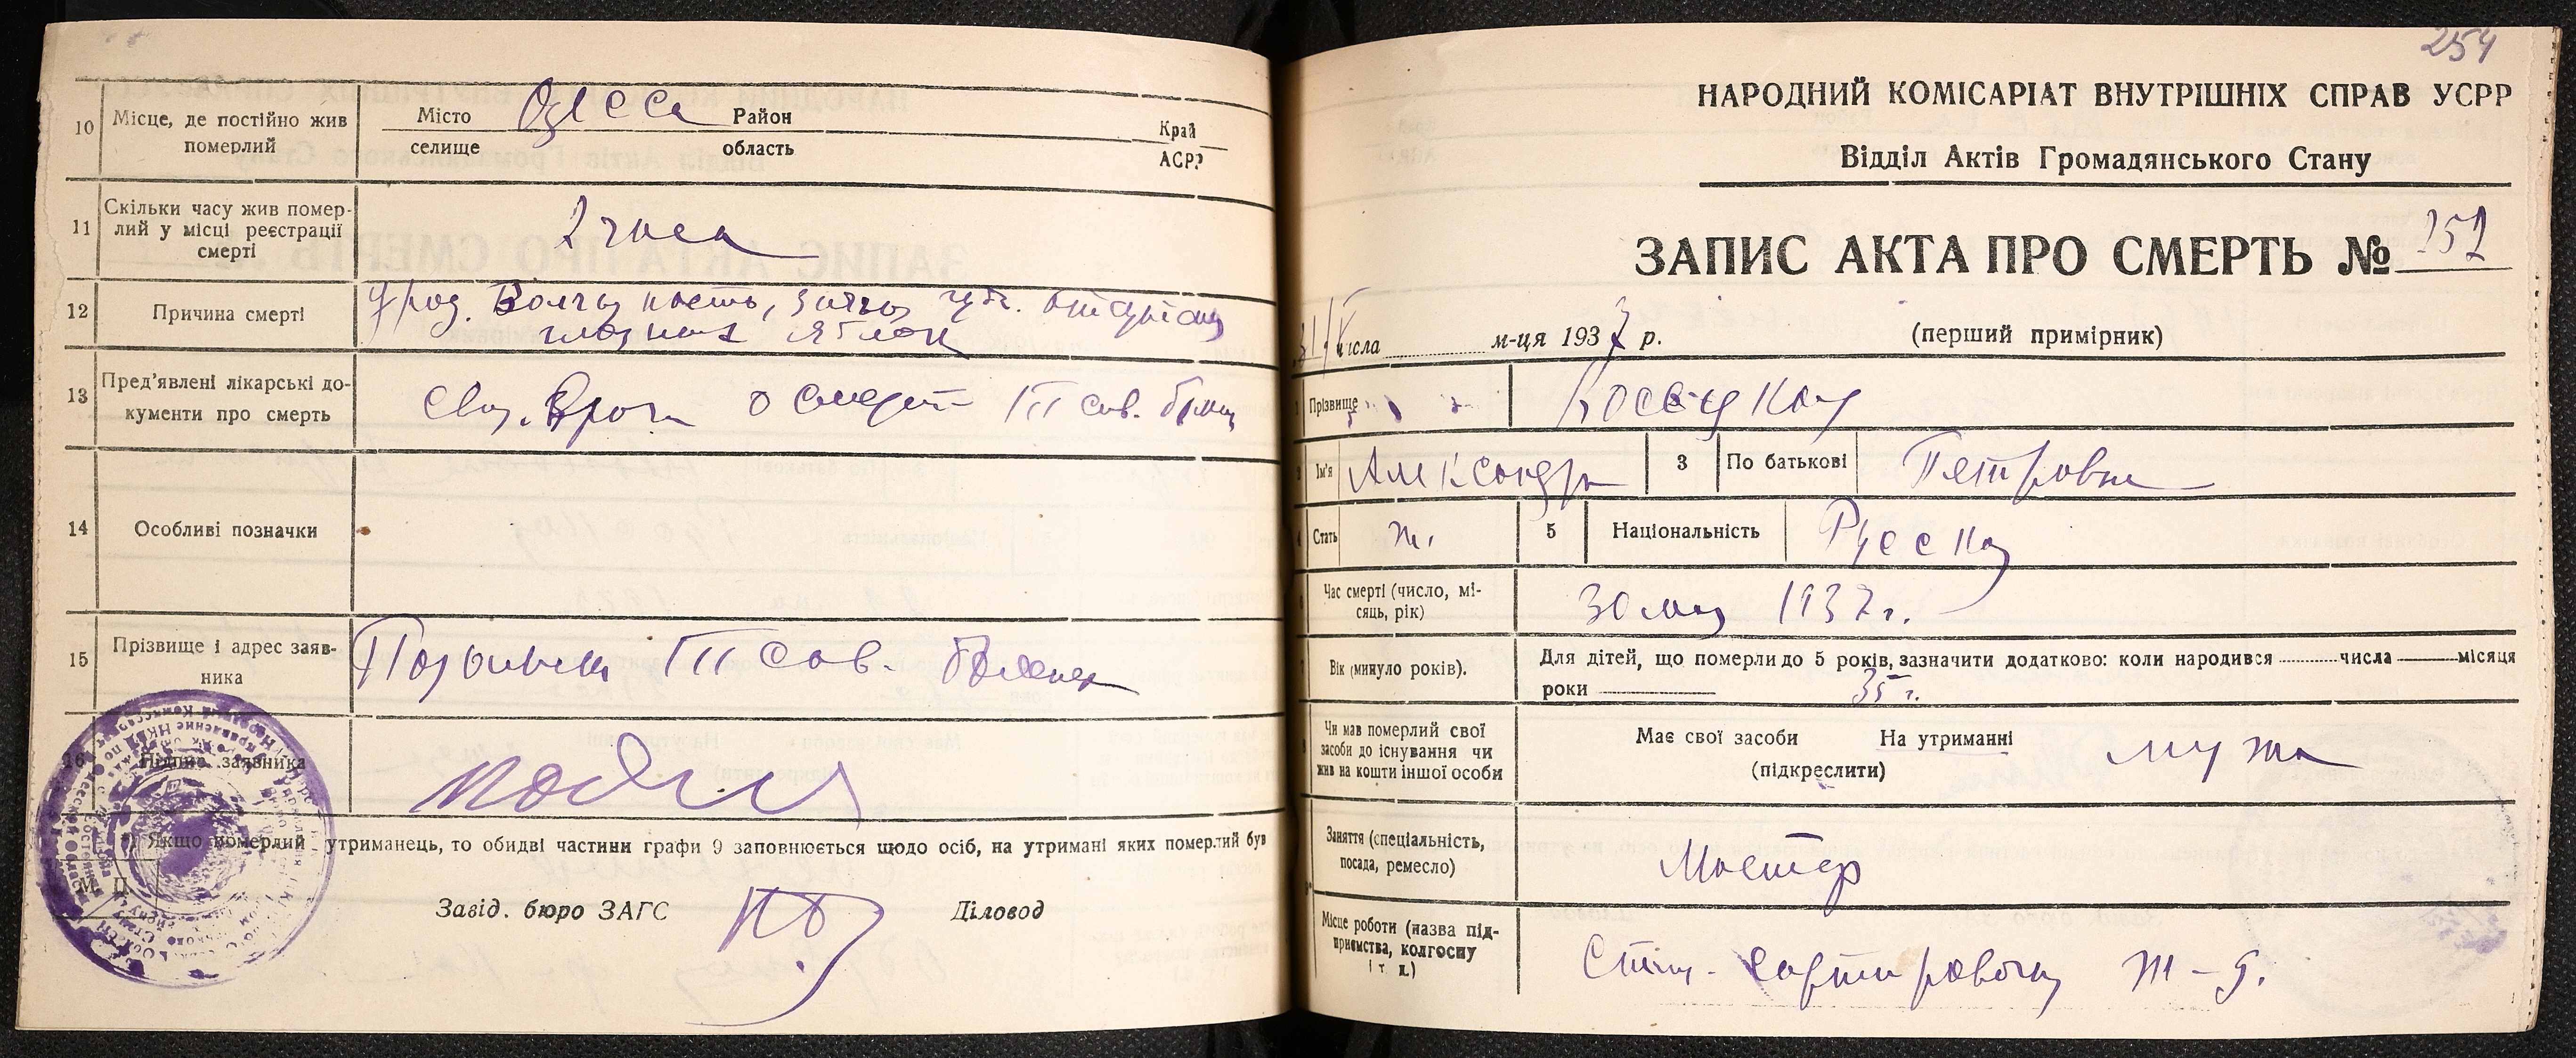 10 Місце, де постійно жив померлий
Місто Одесса Район Край
селище область АСРР
11 Скільки часу жив помер-
лий у місці реєстрації
смерті
2 часа
12 Причина смерти
глазных яблок
13 Пред'явлені лікарські до-
кументи про смерть
о смерти III сов. больн
14 Особливі позначки
15 Прізвище і адрес заяв-
ника
III сов. больница
16 Підпис заявника
Якщо померлий утриманець, то обидві частини графи 9 заповнюється щодо осіб, на утримані яких померлий був
М. П.
Завід. бюро ЗАГС Діловод
254
НАРОДНИЙ КОМІСАРІАТ ВНУТРІШНІХ СПРАВ УСРР
Відділ Актів Громадянського Стану
ЗАПИС АКТА ПРО СМЕРТЬ № 252
31/V числа м-ця 1937 р. (перший примірник)
Прізвище
Ім'я Александра 3 По батькові Петровна
Стать ж. 5 Національність Русская
Час смерті (число, мі-
сяць, рік)
30 мая 1937 г.
Вік (минуло років).
Для дітей, що померли до 5 років, зазначити додатково: коли народився числа місяця
роки 35 г.
Чи мав померлий свої
засоби до існування чи
жив на кошти іншої особи
Має свої засоби На утриманні мужа
(підкреслити)
Заняття (спеціальність,
посада, ремесло)
Мастер
Місце роботи (назва під-
приємства, колгоспу
і т. п.)
Станц. сортировочная ж-д.